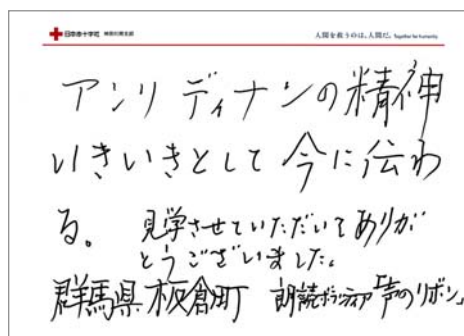 日本赤十字社 神奈川県支部
人間を救うのは、人間だ。 Together for humanity
アンリ ディナンの精神
いきいきとして 今に伝わ
る。 見学させていただいてありが
とうございました。
群馬県板倉町 朗読ボランティア「声のリボン」